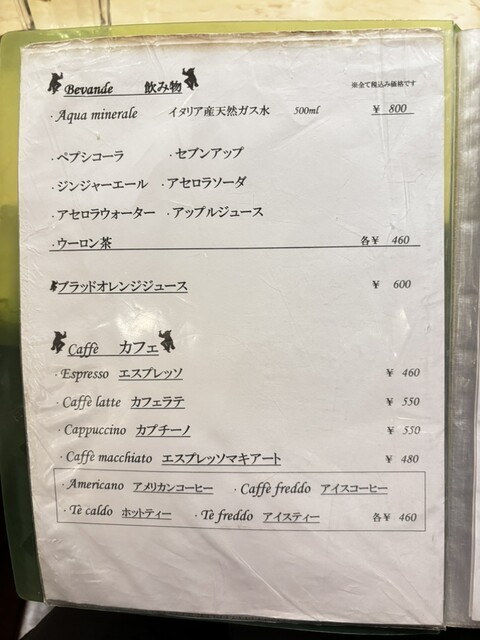 Bevande 飲み物 ※全て税込み価格です
・Aqua minerale イタリア産天然ガス水 500ml ¥ 800
・ペプシコーラ ・セブンアップ
・ジンジャーエール ・アセロラソーダ
・アセロラウォーター ・アップルジュース
・ウーロン茶 各¥ 460
ブラッドオレンジジュース ¥ 600
Caffè カフェ
・Espresso エスプレッソ ¥ 460
・Caffè latte カフェラテ ¥ 550
・Cappuccino カプチーノ ¥ 550
・Caffè macchiato エスプレッソマキアート ¥ 480
・Americano アメリカンコーヒー ・Caffè freddo アイスコーヒー
・Tè caldo ホットティー ・Tè freddo アイスティー 各¥ 460